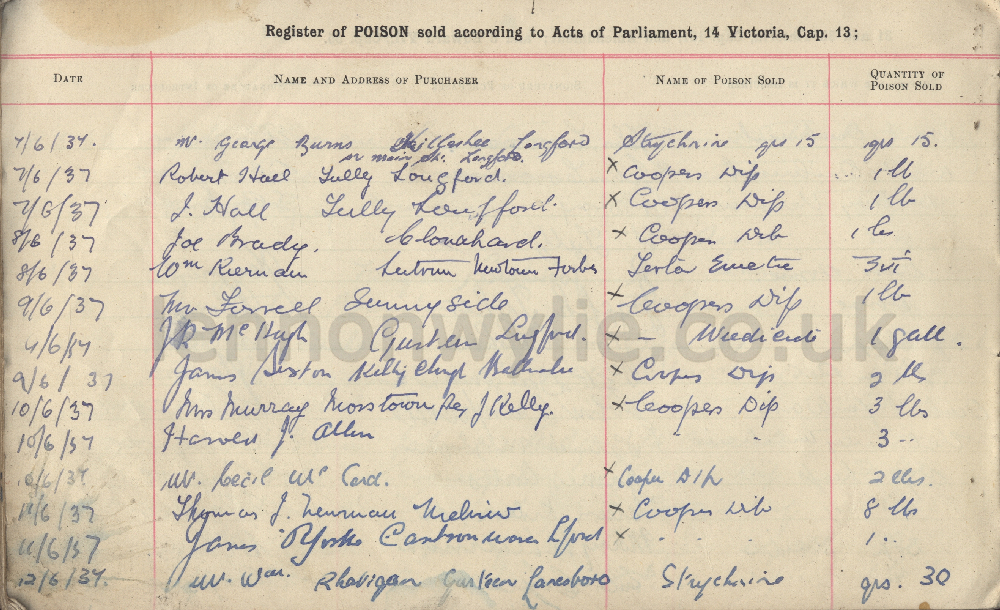 Register of POISON sold according to Acts of Parliament, 14 Victoria, Cap. 13;
DATE NAME AND ADDRESS OF PURCHASER NAME OF POISON SOLD QUANTITY OF POISON SOLD
7/6/37. Mr. George Burns Killashee Longford Strychnine grs 15 grs 15.
or main St. Longford.
7/6/37 Robert Hall Tully Longford. x Coopers Dip 1 lb
7/6/37 J. Hall Tully Longford. x Coopers Dip 1 lb
8/6/37 Joe Brady. Clonahard. x Cooper Dip
8/6/37 Wm Kiernan Newtown Forbes Emetic
9/6/37 Farrell Sunnyside x Coopers Dip 1 lb
McHugh x - Weedicide 1 gall.
9/6/37 James Sexton x Coopers Dip 2 lbs
10/6/37 Mrs Murray Mosstown per J Kelly. x Coopers Dip 3 lbs
10/6/37 J. Allen " " 3 "
Mr. Cecil Mc Cord. x Cooper Dip 2 lbs.
11/6/37 Thomas J. Newman x Cooper Dip 8 lbs
11/6/37 James x " " 1 "
12/6/37. Mr. Wm. Rhatigan Lanesboro Strychnine grs. 30
lennonwylie.co.uk